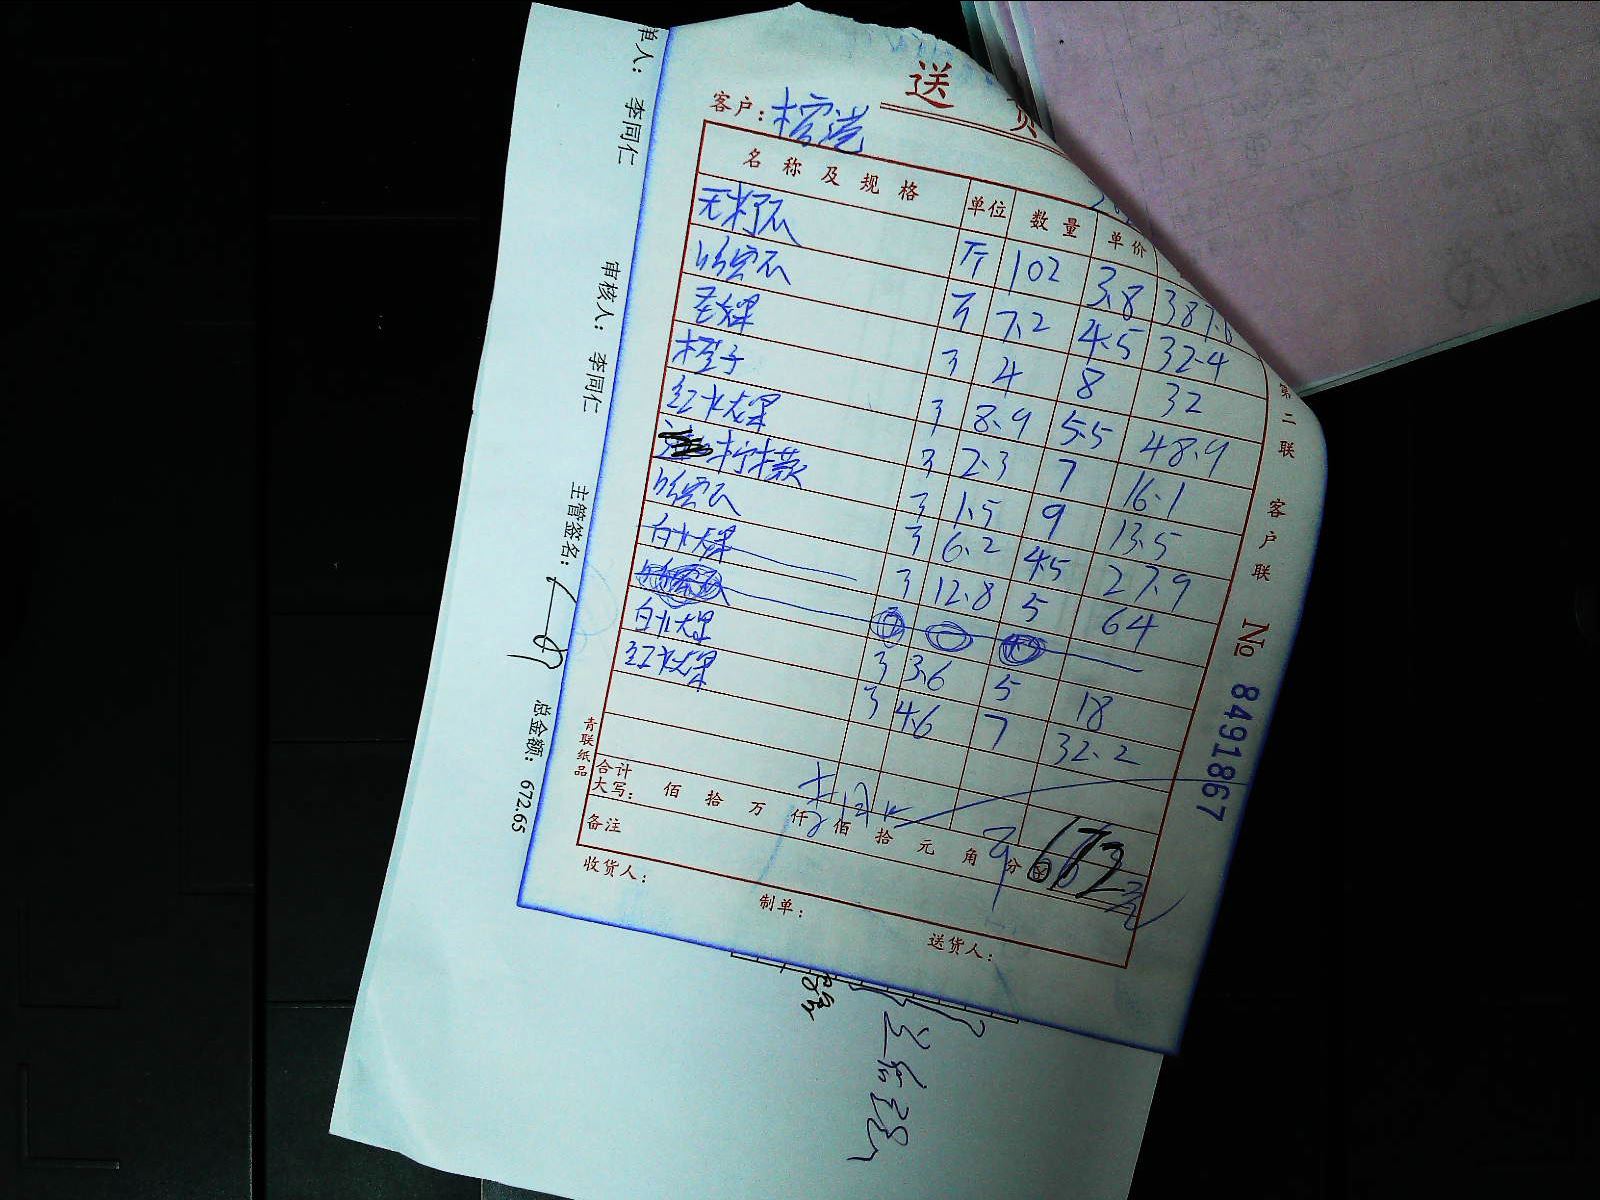 送 货
客户：
名称及规格 单位 数量 单价
斤 102 3.8 387.6
斤 7.2 4.5 32.4
3 4 8 32
橙子 3 8.9 5.5 48.9
红水大果 3 2.3 7 16.1
柠檬 3 1.5 9 13.5
3 6.2 4.5 27.9
白水大果 3 12.8 5 64
白水大果 3 3.6 5 18
红水大果 3 4.6 7 32.2
合计
大写： 佰 拾 万 仟 佰 拾 元 角 分 672
备注
收货人： 制单： 送货人：
青联纸品
第二联 客户联 No 8491867
单人： 李同仁
审核人： 李同仁
主管签名：
总金额： 672.65